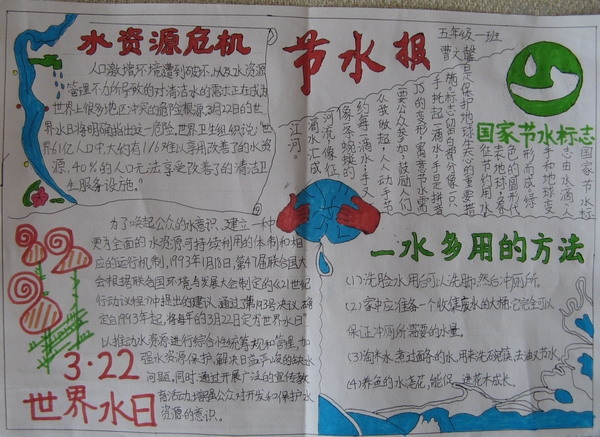 水资源危机
人口激增环境遭到破坏,以及水资源
管理不力所导致的对清洁水的需求正在成为
世界上很多地区冲突的危险根源,3月22日的世
界水日将明确指出这一危险,世界卫生组织说,世
界61亿人口中大约有11.6难以享用改善了的水资
源,40%的人口无法享受改善了的清洁卫
生服务设施。
节水报
五年级一班
曹文馨
国家节水标志
标志由水滴人
手和地球变
形而成绿
色的圆形代
表地球,象
征节约用水
是保护地球生态的重要措
施。标志留白部分像一只
手托起一滴水,手是拼音
JS的变形,寓意节水需
要公众参加,鼓励人们
从我做起,人人动手节
约每一滴水,手又
像一条蜿蜒的
河流,像征
滴水汇成
江河。
为了唤起公众的水意识,建立一种
更为全面的水资源可持续利用的体制和相
应的运行机制,1993年1月18日,第47届联合国大
会根据联合国环境与发展大会制定的《21世纪
行动议程》中提出的建议,通过了第193号决议,确
定自1993年起,将每年的3月22日定为世界水日"
以推动水资源进行综合性统筹规和管里,加
强水资源保护,解决日益严峻的缺水
问题,同时,通过开展广泛的宣传教
育活动,增强公众对开发和保护水
资源的意识。
3·22
世界水日
一水多用的方法
(1)洗脸水用后可以洗脚,然后冲厕所
(2)家中应准备一个收集废水的大桶,它完全可以
保证冲厕所需要的水量。
(3)淘米水,煮过面条的水,用来洗碗筷,去油又节水
(4)养鱼的水浇花,能促进花木成长。